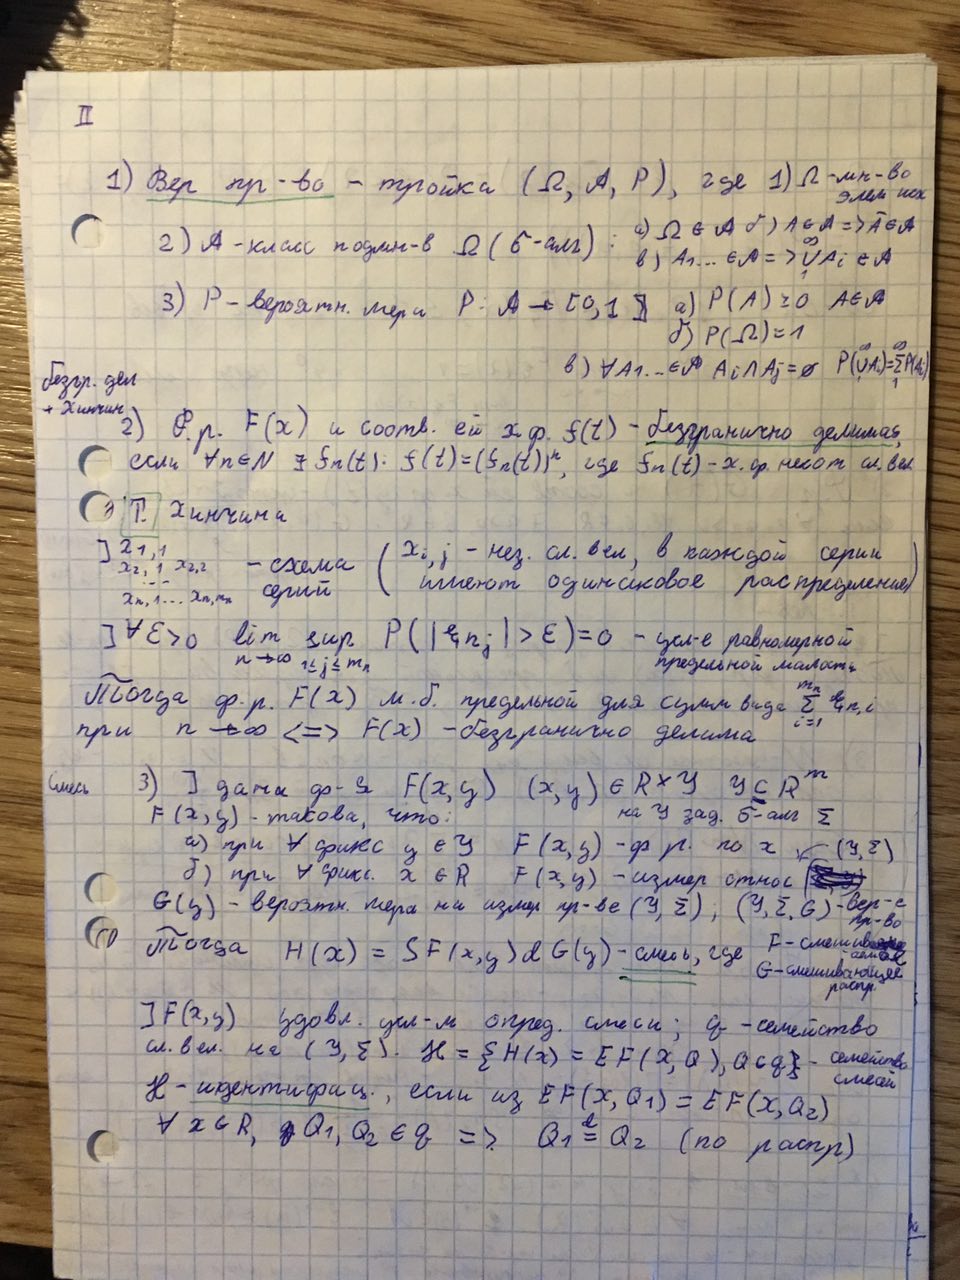 II
1) Вер пр-во - тройка (Ω, A, P), где 1) Ω - мн-во
элем исх
2) A - класс подмн-в Ω (σ-алг) : а) Ω ∈ A б) A ∈ A => Ā ∈ A
в) A1... ∈ A => ∞∪1 Ai ∈ A
3) P - вероятн. мера P: A → [0,1] а) P(A) ≥ 0 A ∈ A
б) P(Ω) = 1
в) ∀A1... ∈ A Ai ∩ Aj = ∅ P(∞∪1 Ai) = ∞Σ1 P(Ai)
безгр. дел
+ Хинчин
2) Ф.р. F(x) и соотв. ей х.ф. f(t) - безгранично делимая,
если ∀n∈N ∃ fn(t): f(t) = (fn(t))ⁿ, где fn(t) - х.ф. некот сл. вел
Т. Хинчина
] x1,1
x2,1 x2,2 - схема ( xi,j - нез. сл. вел, в каждой серии
... серий имеют одинаковое распределение)
xn,1 ... xn,mn
] ∀ε>0 lim n→∞ sup 1≤j≤mn P(|ξnj| > ε) = 0 - усл-е равномерной
предельной малости
Тогда ф.р. F(x) м.б. предельной для сумм вида mnΣi=1 ξn,i
при n → ∞ <=> F(x) - безгранично делима
Смесь
3) ] дана ф-я F(x,y) (x,y) ∈ R×Y Y ⊆ Rᵐ
F(x,y) - такова, что: на Y зад. σ-алг Σ
а) при ∀ фикс y ∈ Y F(x,y) - ф.р. по x (Y,Σ)
б) при ∀ фикс. x ∈ R F(x,y) - измер относ
G(y) - вероятн. мера на измер пр-ве (Y,Σ); (Y,Σ,G) - вер-е
пр-во
Тогда H(x) = ∫F(x,y)dG(y) - смесь, где F - смешиваемое
G - смешивающее
распр.
] F(x,y) удовл. усл-м опред. смеси; q - семейство
сл. вел. на (Y,Σ). H = {H(x) = EF(x,Q), Q∈q} - семейство
смесей
H - идентифиц., если из EF(x,Q1) = EF(x,Q2)
∀ x∈R, Q1,Q2 ∈ q => Q1 d= Q2 (по распр)